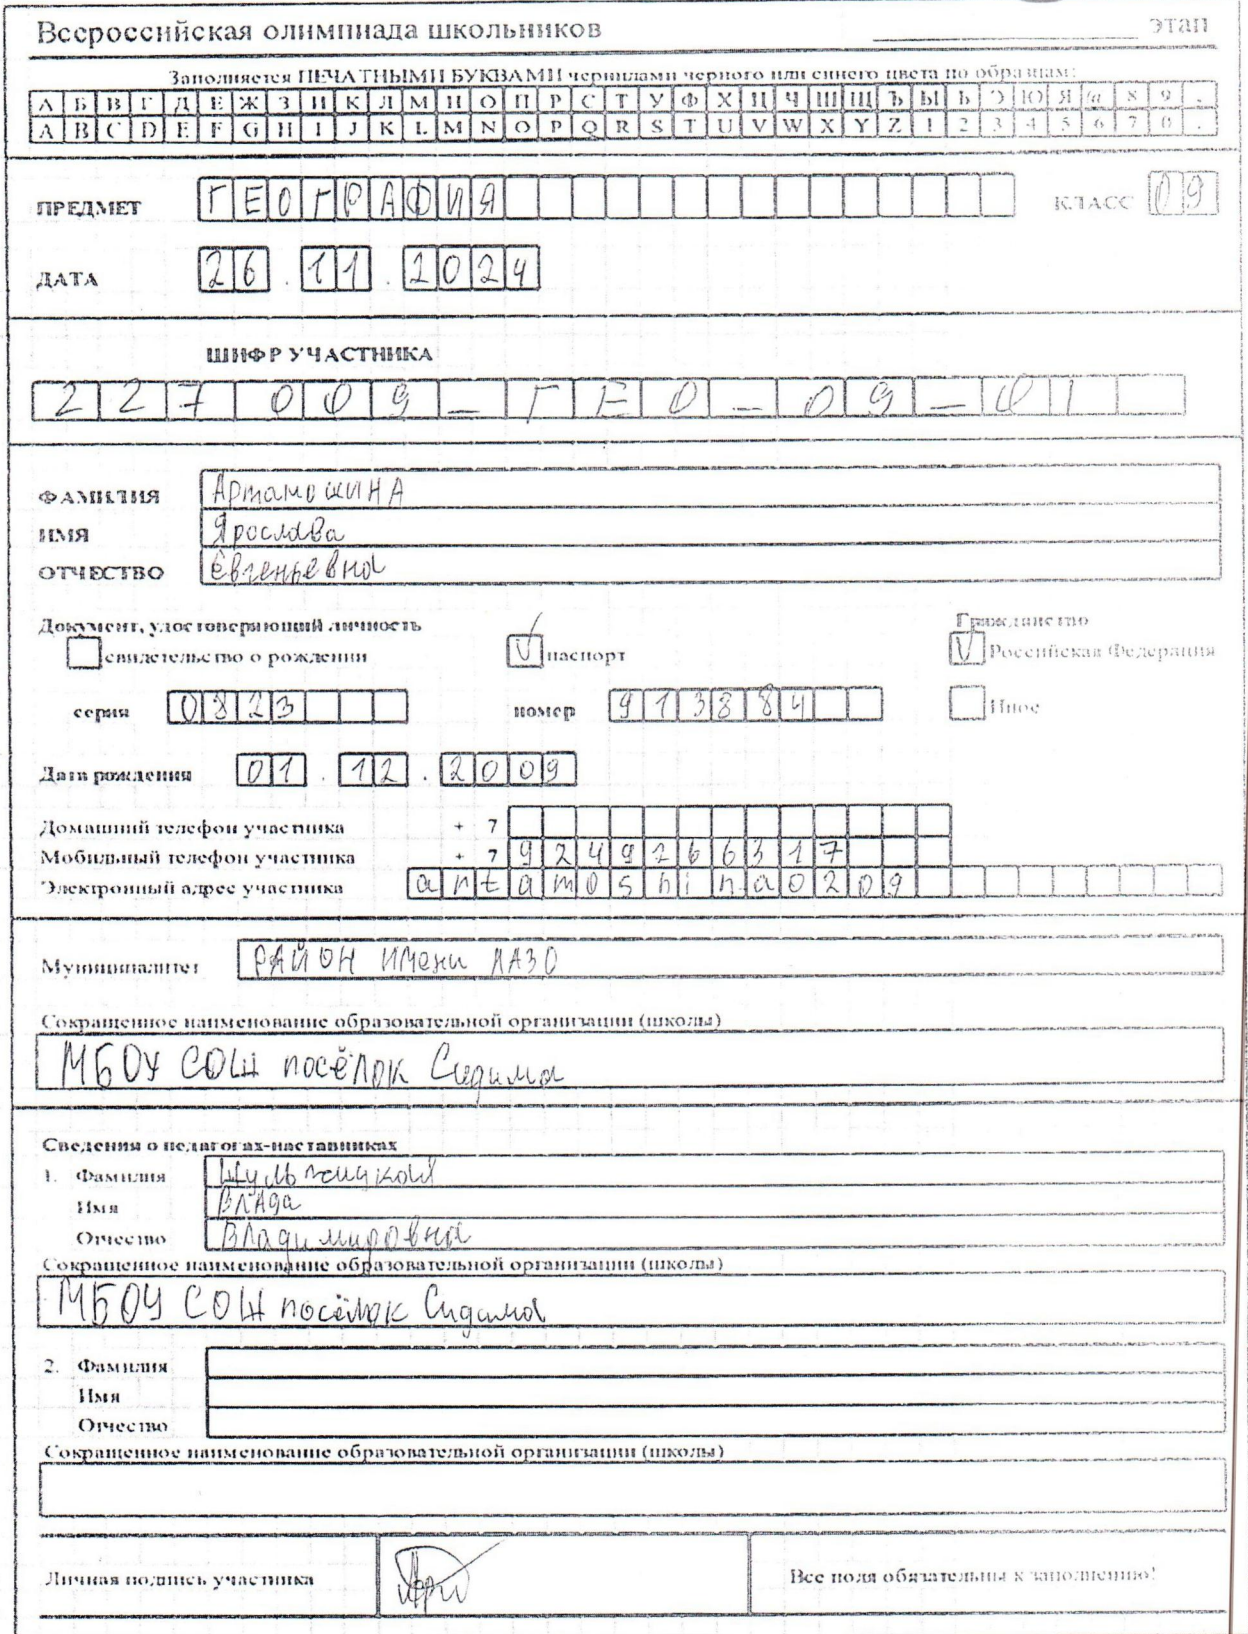 Всероссийская олимпиада школьников ____________ этап
Заполняется ПЕЧАТНЫМИ БУКВАМИ чернилами черного или синего цвета по образцам:
А Б В Г Д Е Ж З И К Л М Н О П Р С Т У Ф Х Ц Ч Ш Щ Ъ Ы Ь Э Ю Я @ 8 9 ,
A B C D E F G H I J K L M N O P Q R S T U V W X Y Z 1 2 3 4 5 6 7 0 .
ПРЕДМЕТ ГЕОГРАФИЯ КЛАСС 09
ДАТА 26.11.2024
ШИФР УЧАСТНИКА
227009_ГЕО_09_01
ФАМИЛИЯ АртамошИНА
ИМЯ Ярослава
ОТЧЕСТВО Евгеньевна
Документ, удостоверяющий личность Гражданство
свидетельство о рождении V паспорт V Российская Федерация
серия 0823 номер 913884 Иное
Дата рождения 01.12.2009
Домашний телефон участника +7
Мобильный телефон участника +7 9249266317
Электронный адрес участника artamoshina0209
Муниципалитет РАЙОН ИМени ЛАЗО
Сокращенное наименование образовательной организации (школы)
МБОУ СОШ посёлок Сидима
Сведения о педагогах-наставниках
1. Фамилия
Имя ВлАда
Отчество Владимировна
Сокращенное наименование образовательной организации (школы)
МБОУ СОШ посёлок Сидима
2. Фамилия
Имя
Отчество
Сокращенное наименование образовательной организации (школы)
Личная подпись участника Все поля обязательны к заполнению!